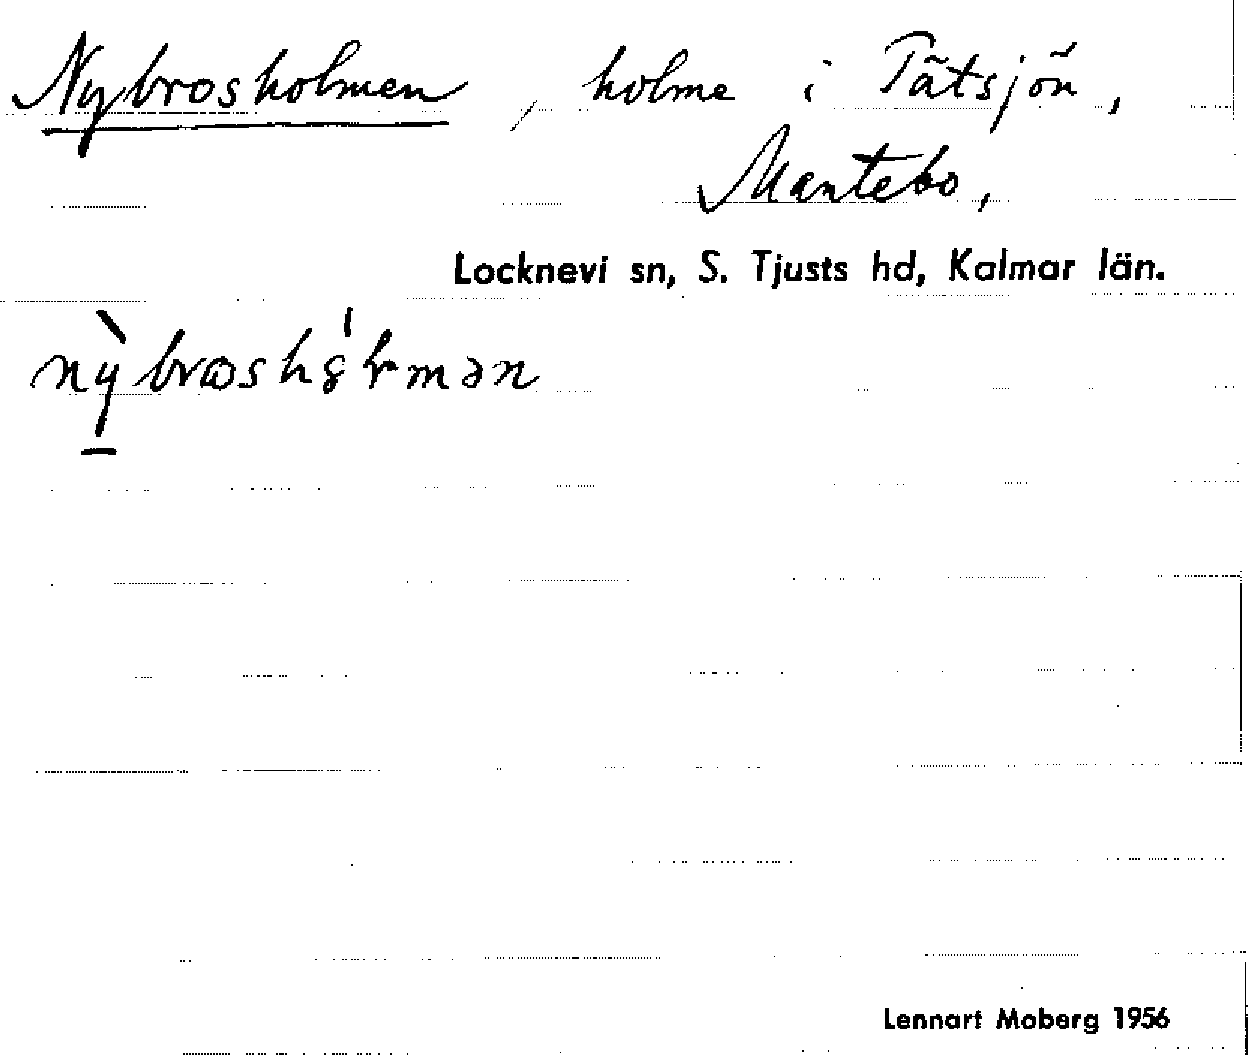 Nybrosholmen, holme i Tätsjön,
Mantebo,
Locknevi sn, S. Tjusts hd, Kalmar län.
Lennart Moberg 1956